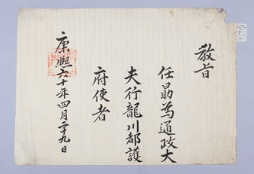 敎旨
任勗為通政大
夫行龍川都護
府使者
康熙六十年四月二十九日